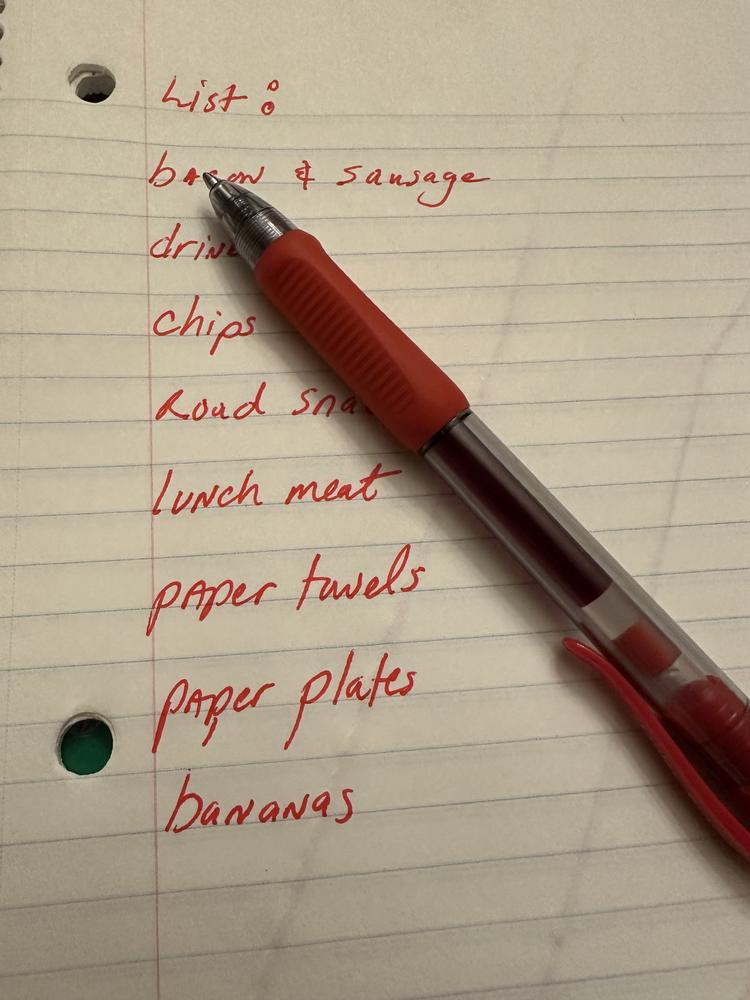 List:
& sausage
chips
Road
lunch meat
paper towels
paper plates
bananas